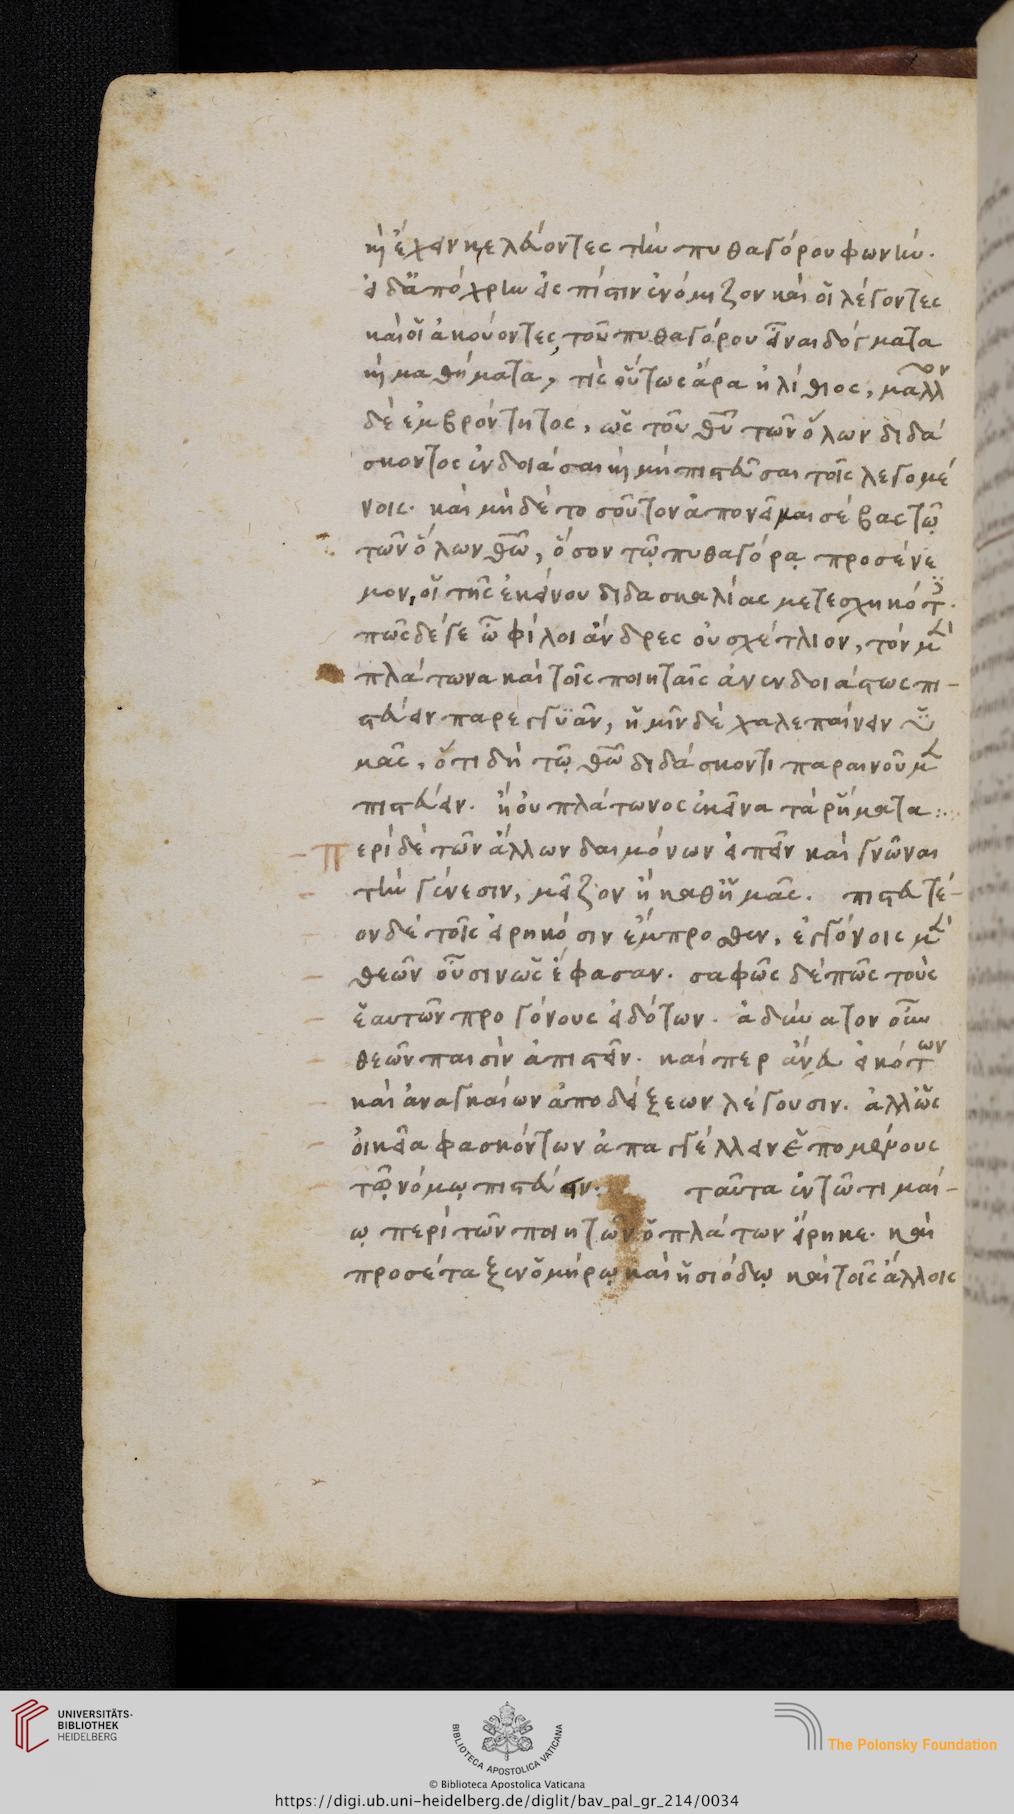 ἢ ἔχειν κελεύοντες τὴν πυθαγόρου φωνήν.
εἰ δὲ ἀπόχρην εἰς πίστιν ἐνόμιζον καὶ οἱ λέγοντες
καὶ οἱ ἀκούοντες, τοῦ πυθαγόρου εἶναι δόγματα
ἢ μαθήματα, τίς οὕτως ἄρα ἠλίθιος, μᾶλλον
δὲ ἐμβρόντητος, ὡς τοῦ θῦ τῶν ὅλων διδά
σκοντος ἐνδοιάσαι ἢ μὴ πιστεῦσαι τοῖς λεγομέ
νοις. καὶ μηδὲ τοσοῦτον ἀπονεῖμαι σέβας τῶ
τῶν ὅλων θῶ, ὅσον τῶ πυθαγόρᾳ προσένε
μον, οἱ τῆς ἐκείνου διδασκαλίας μετεσχηκότες.
πῶς δέ γε ὦ φίλοι ἄνδρες οὐ σχέτλιον, τὸν μὲν
πλάτωνα καὶ τοῖς ποιηταῖς ἀνενδοιάστως πι-
στεύειν παρεγγυᾶν, ἡμῖν δὲ χαλεπαίνειν ὑ
μᾶς, ὅτι δὴ τῶ θῶ διδάσκοντι παραινοῦμεν
πιστεύειν. ἢ οὐ πλάτωνος ἐκεῖνα τὰ ῥήματα:
Περὶ δὲ τῶν ἄλλων δαιμόνων εἰπεῖν καὶ γνῶναι
τὴν γένεσιν, μεῖζον ἢ καθ ἡμᾶς. πιστευτέ-
ον δὲ τοῖς εἰρηκόσιν ἔμπροσθεν, ἐκγόνοις μὲν
θεῶν οὖσιν ὡς ἔφασαν. σαφῶς δέ πως τοὺς
ἑαυτῶν προγόνους εἰδότων. ἀδύνατον οὖν
θεῶν παισὶν ἀπιστεῖν. καίπερ ἄνευ εἰκότων
καὶ ἀναγκαίων ἀποδείξεων λέγουσιν. ἀλλ ὡς
οἰκεῖα φασκόντων ἀπαγγέλλειν ἑπομένους
τῶ νόμῳ πιστευτέον. ταῦτα ἐν τῶ τιμαί-
ῳ περὶ τῶν ποιητῶν ὁ πλάτων εἴρηκε. καὶ
προσέταξεν ὁμήρῳ καὶ ἡσιόδῳ καὶ τοῖς ἄλλοις
UNIVERSITÄTS-
BIBLIOTHEK
HEIDELBERG
BIBLIOTECA APOSTOLICA VATICANA
The Polonsky Foundation
© Biblioteca Apostolica Vaticana
https://digi.ub.uni-heidelberg.de/diglit/bav_pal_gr_214/0034